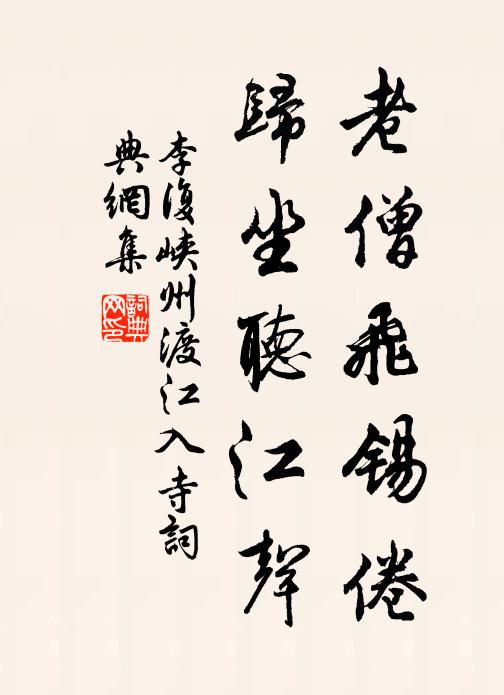 老僧飛錫倦
歸坐聽江聲
李復峽州渡江入寺詞
典網集
詞典
网印